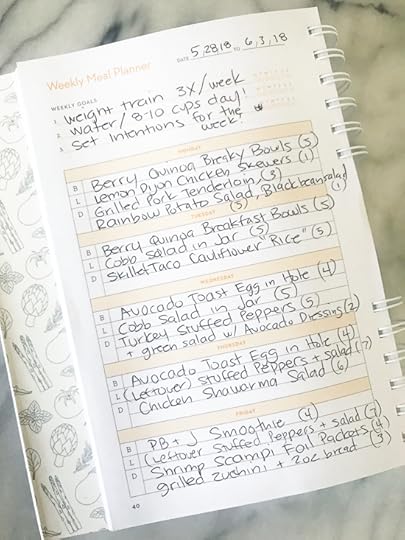 DATE 5,28,18 TO 6,3,18
Weekly Meal Planner
WEEKLY GOALS
1. weight train 3x/week
2. water/8-10 cups day!
3. Set intentions for the
week!
MONDAY
B Berry Quinoa Breaky Bowls (5)
L Lemon Dijon Chicken Skewers (1)
D Grilled Pork Tenderloin, (3)
Rainbow Potato Salad, Black bean salad
(5) (1)
TUESDAY
B Berry Quinoa Breakfast Bowls (5)
L Cobb Salad in Jar (5)
D Skillet Taco Cauliflower "Rice" (5)
WEDNESDAY
B Avocado Toast Egg in Hole (4)
L Cobb Salad in Jar (5)
D Turkey Stuffed Peppers (5)
+ green salad w/ Avocado Dressing (2)
THURSDAY
B Avocado Toast Egg in Hole (4)
L (Leftover) Stuffed Peppers + salad (7)
D Chicken Shawarma Salad (6)
FRIDAY
B PB + J Smoothie (4)
L (Leftover Stuffed Peppers + salad (7)
D Shrimp Scampi Foil Packets (4)
grilled zucchini + 2oz bread (3)
40